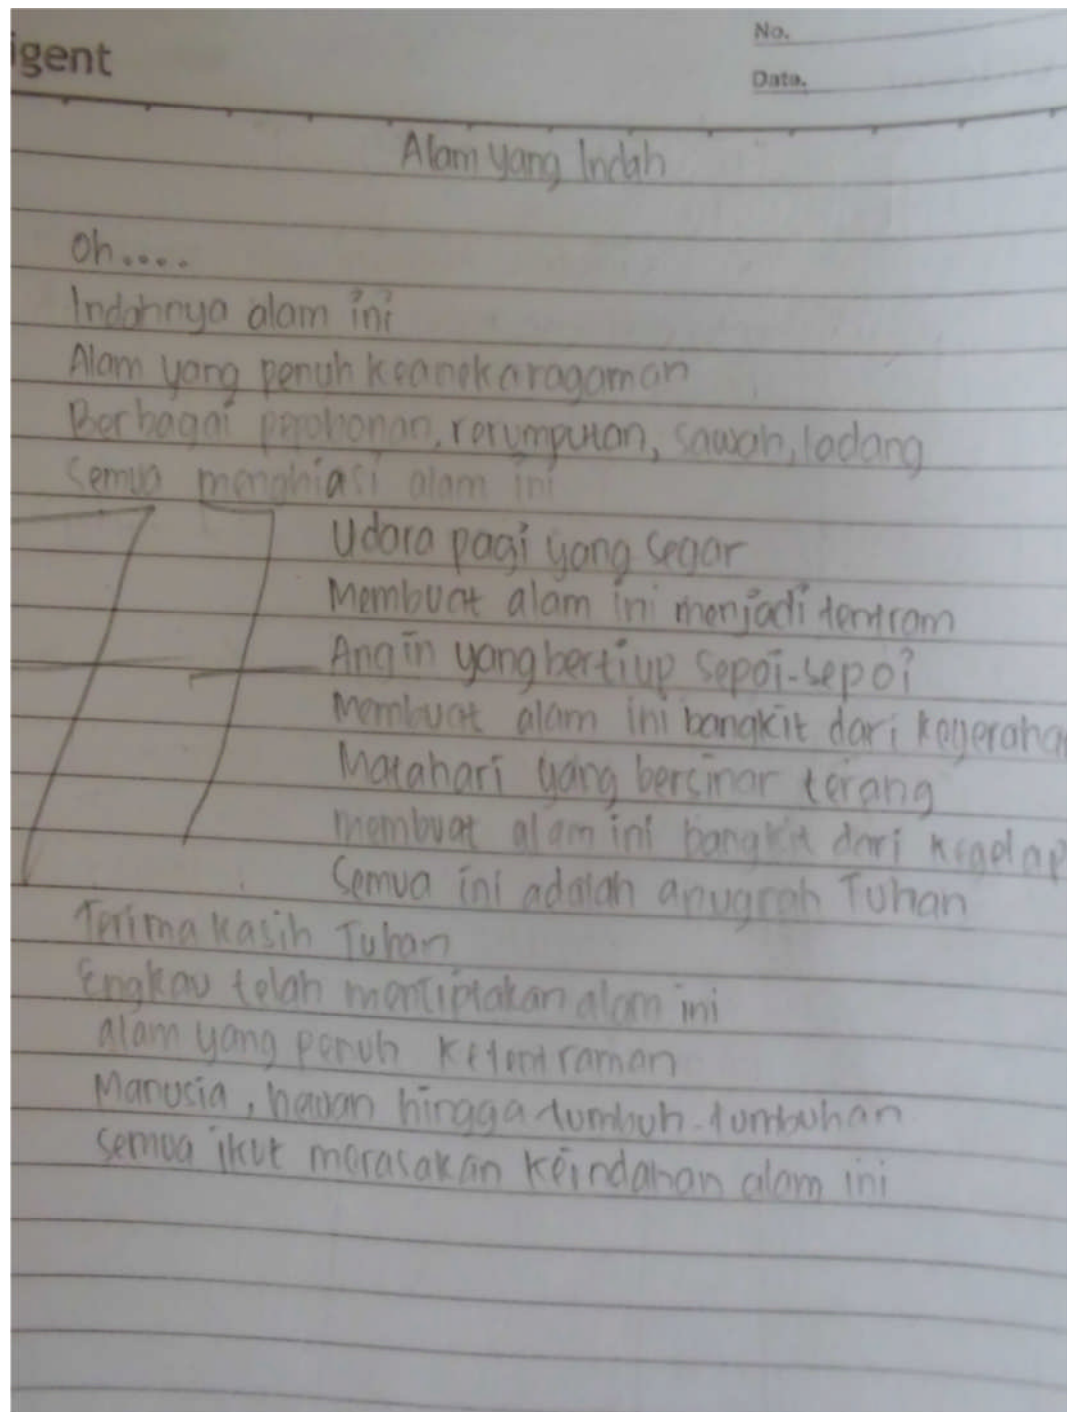 igent
No.
Date.
Alam yang Indah
Oh....
Indahnya alam ini
Alam yang penuh keanekaragaman
Berbagai pepohonan, rerumputan, sawah, ladang
Semua menghiasi alam ini
Udara pagi yang segar
Membuat alam ini menjadi tentram
Angin yang bertiup sepoi-sepoi
Membuat alam ini bangkit dari
Matahari yang bersinar terang
membuat alam ini bangkit dari kegelap
Semua ini adalah anugrah Tuhan
Terima kasih Tuhan
Engkau telah menciptakan alam ini
alam yang penuh ketentraman
Manusia, hewan hingga tumbuh-tumbuhan
semua ikut merasakan keindahan alam ini
77